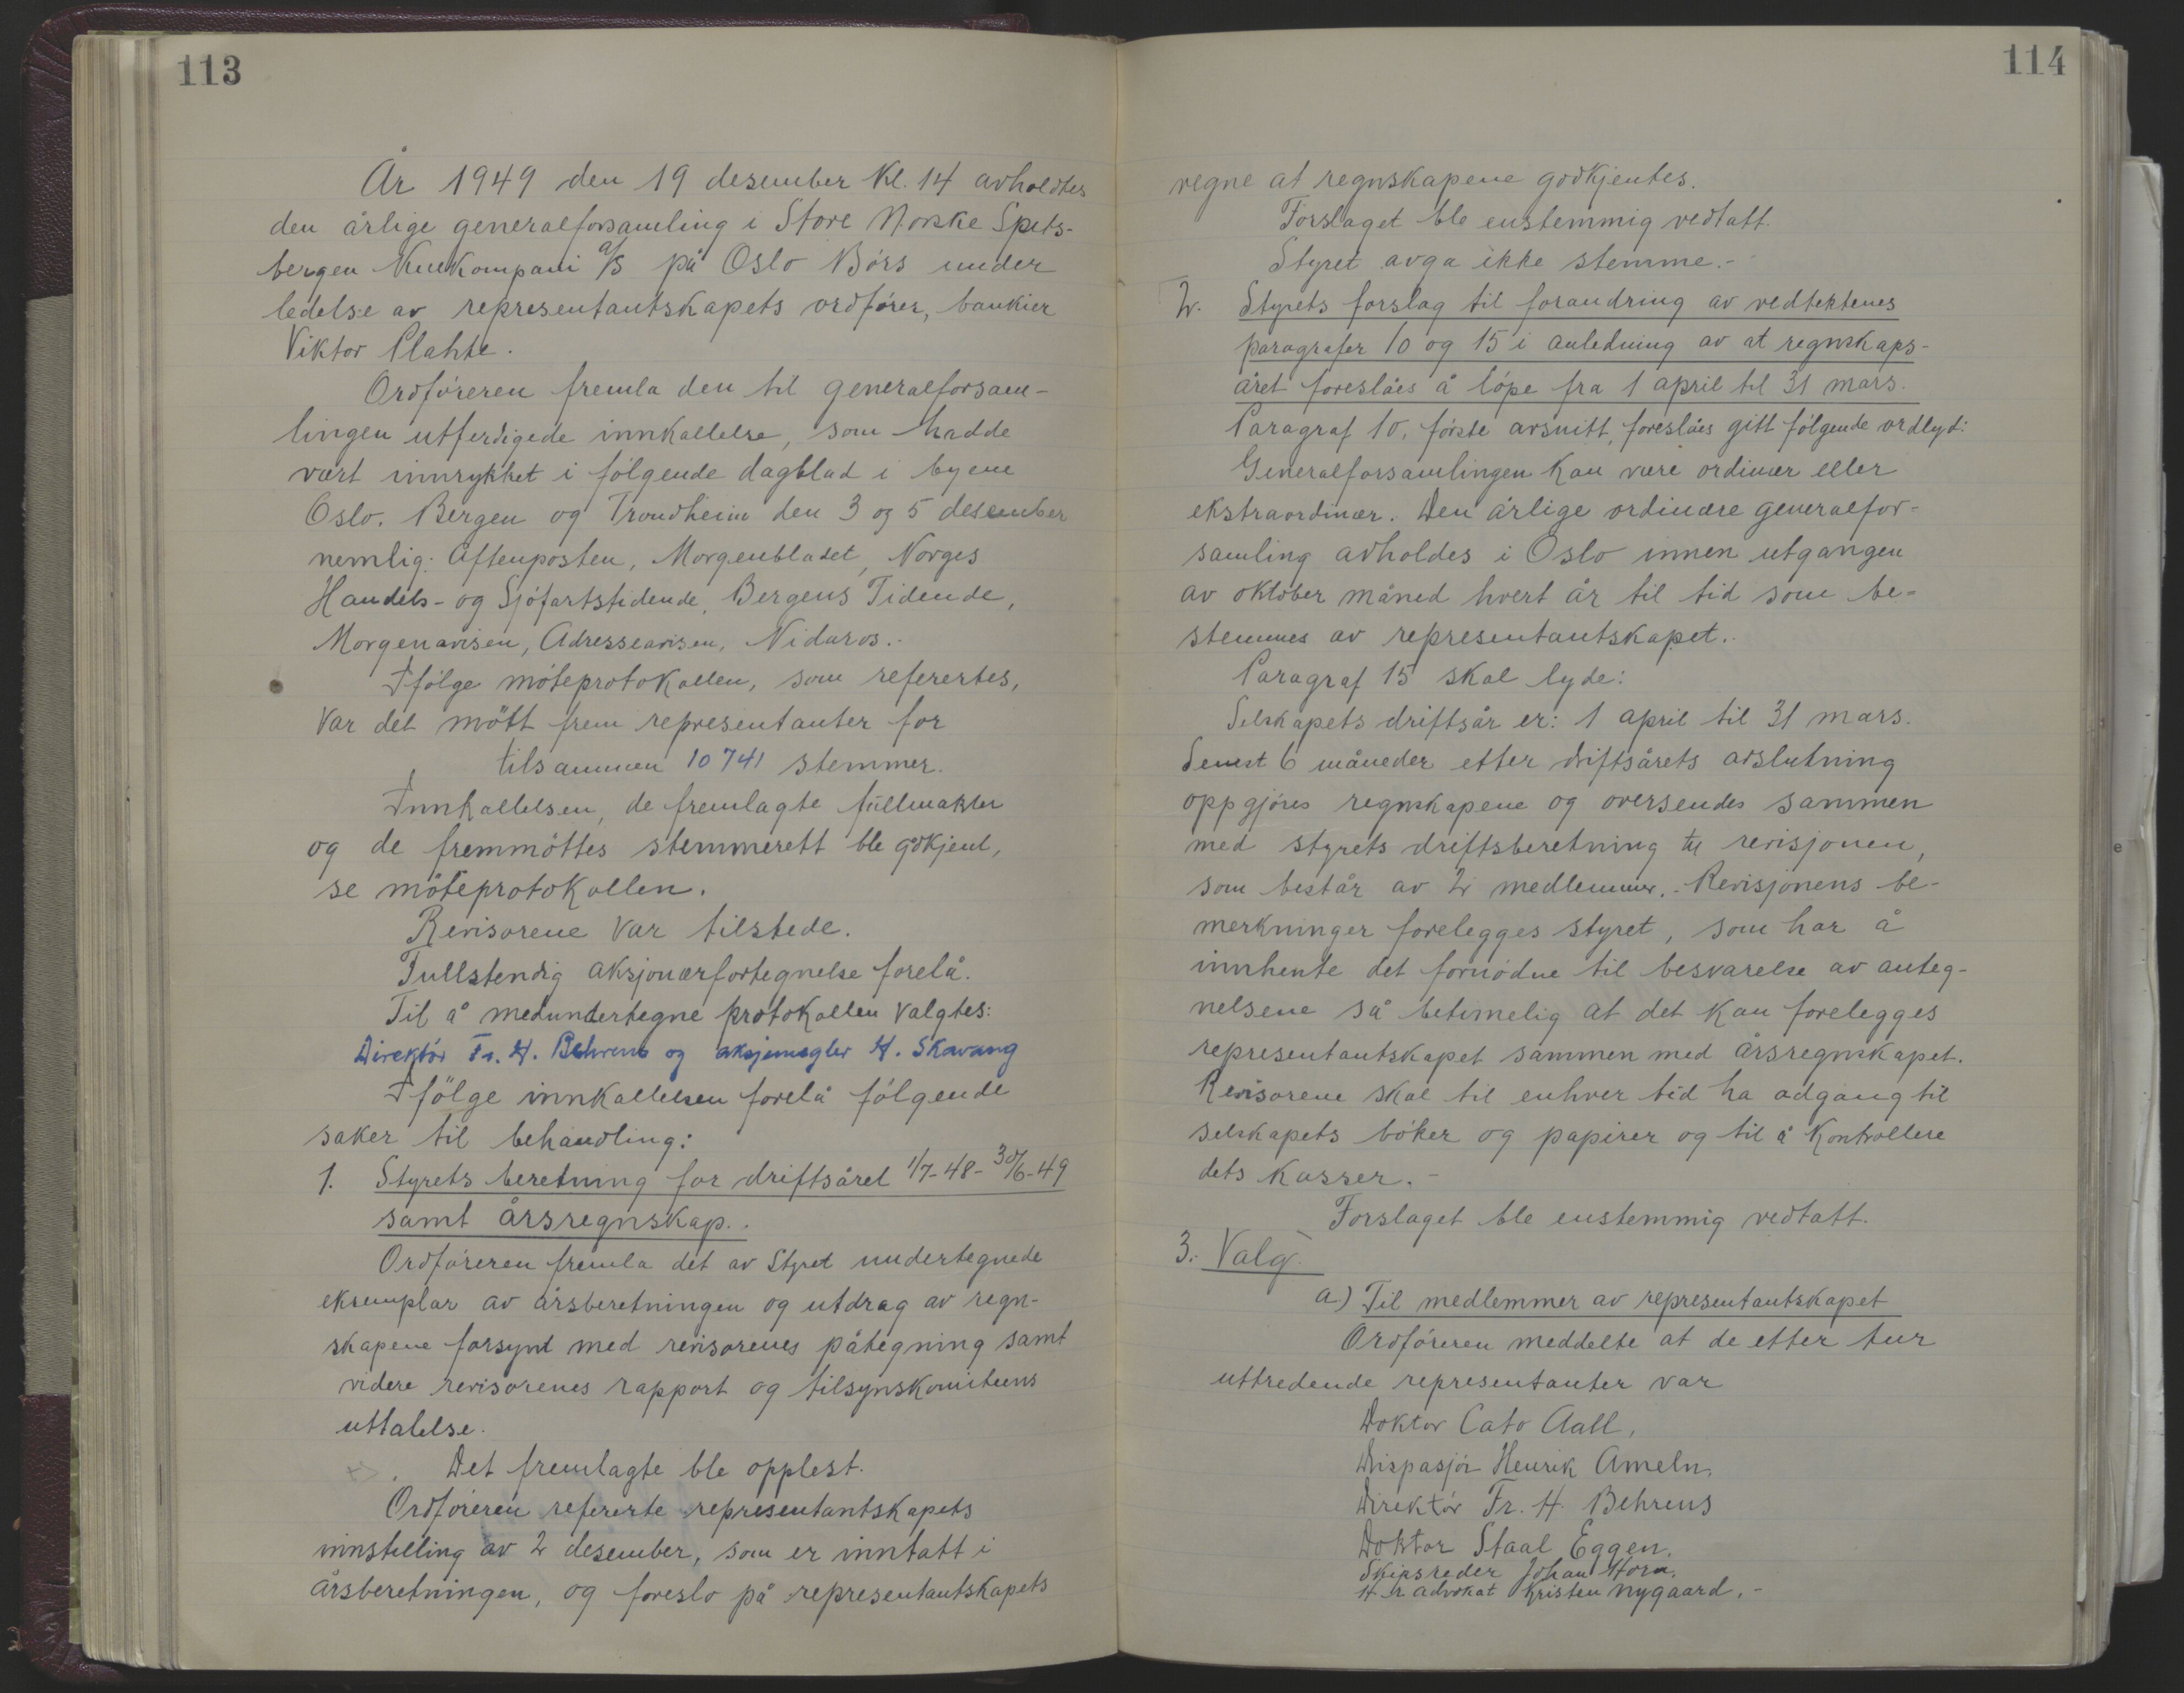 113
År 1949 den 19 desember Kl. 14 avholdtes
den årlige generalforsamling i Store Norske Spets-
bergen Kulkompani A/S på Oslo Börs under
ledelse av representantskapets ordförer, bankier
Viktor Plahte.
Ordföreren fremla den til generalforsam-
lingen utferdigede innkallelse, som hadde
vært innrykket i fölgende dagblad i byene
Oslo, Bergen og Trondheim den 3 og 5 desember
nemlig: Aftenposten, Morgenbladet, Norges
Handels- og Sjöfartstidende, Bergens Tidende,
Morgenavisen, Adresseavisen, Nidaros.-
Ifölge möteprotokollen, som referertes,
var det mött frem representanter for
tilsammen 10741 stemmer.
Innkallelsen, de fremlagte fullmakter
og de fremmöttes stemmerett ble godkjent,
se möteprotokollen.
Revisorene var tilstede.
Fullstendig aksjonærfortegnelse forelå.
Til å medundertegne protokollen valgtes:
Direktör Fr. H. Behrens og aksjemegler H. Skavang
Ifölge innkallelsen forelå fölgende
saker til behandling:
1. Styrets beretning for driftsåret 1/7-48-30/6-49
samt årsregnskap..
Ordföreren fremla det av Styret undertegnede
eksemplar av årsberetningen og utdrag av regn-
skapene forsynt med revisorenes påtegning samt
videre revisorenes rapport og tilsynskomiteens
uttalelse.
Det fremlagte ble opplest.
Ordföreren refererte representantskapets
innstilling av 2 desember, som er inntatt i
årsberetningen, og foreslo på representantskapets
114
vegne at regnskapene godkjentes.
Forslaget ble enstemmig vedtatt.
Styret avga ikke stemme.-
2. Styrets forslag til forandring av vedtektenes
paragrafer 10 og 15 i anledning av at regnskaps-
året foreslåes å löpe fra 1 april til 31 mars.
Paragraf 10, förste avsnitt, foreslåes gitt fölgende ordlyd:
Generalforsamlingen kan være ordinær eller
ekstraordinær. Den årlige ordinære generalfor-
samling avholdes i Oslo innen utgangen
av oktober måned hvert år til tid som be-
stemmes av representantskapet.-
Paragraf 15 skal lyde:
Selskapets driftsår er: 1 april til 31 mars.
Senest 6 måneder etter driftsårets avslutning
oppgjöres regnskapene og oversendes sammen
med styrets driftsberetning til revisjonen,
som består av 2 medlemmer.- Revisjonens be-
merkninger forelegges styret, som har å
innhente det fornödne til besvarelse av anteg-
nelsene så betimelig at det kan forelegges
representantskapet sammen med årsregnskapet.
Revisorene skal til enhver tid ha adgang til
selskapets böker og papirer og til å kontrollere
dets kasser.-
Forslaget ble enstemmig vedtatt.
3. Valg.
a.) Til medlemmer av representantskapet
Ordföreren meddelte at de etter tur
uttredende representanter var
Doktor Cato Aall,
Dispasjör Henrik Ameln,
Direktör Fr. H. Behrens
Doktor Staal Eggen,
Skipsreder Johan Horn,
H.r advokat Kristen Nygaard.-